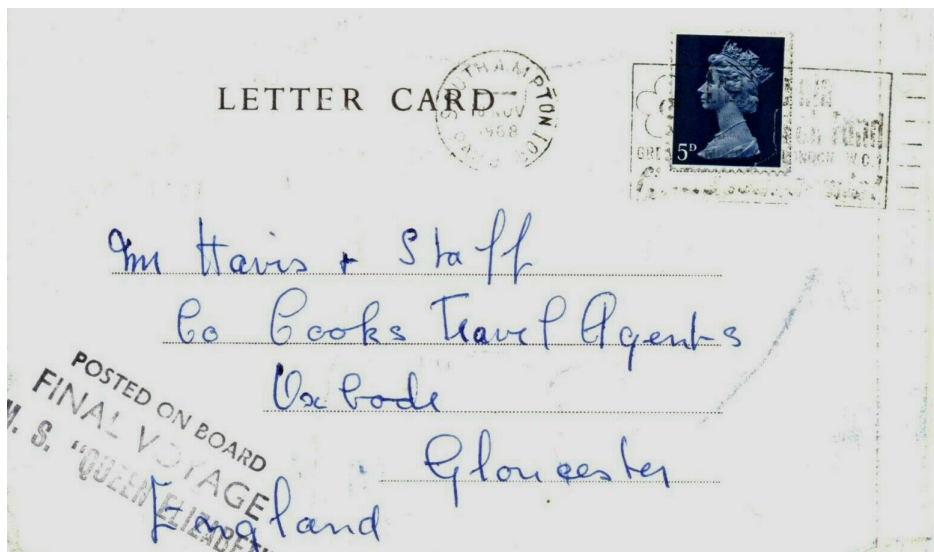 LETTER CARD
SOUTHAMPTON
NOV
1968
5D
W.C.1
Mr Havis + Staff
Co Cooks Travel Agents
Oxbode
Gloucester
England
POSTED ON BOARD
FINAL VOYAGE
M. S. "QUEEN ELIZABETH